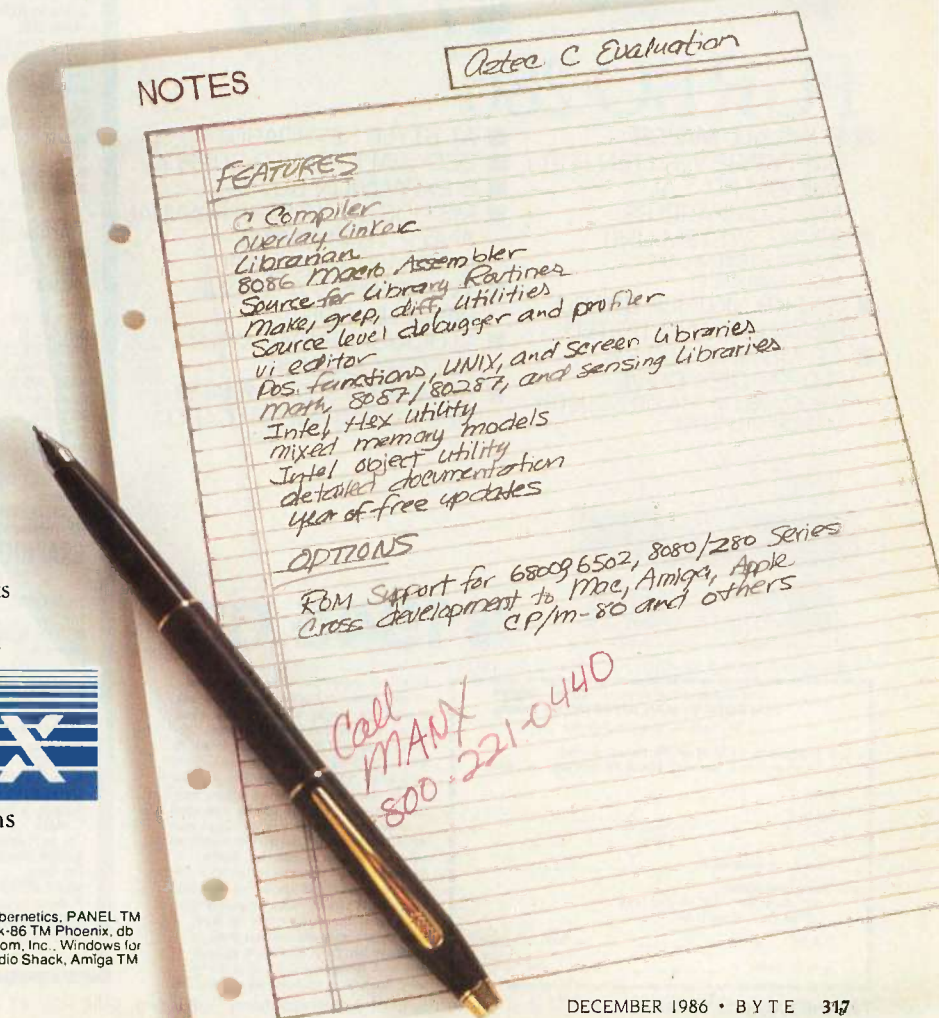 NOTES
Aztec C Evaluation
FEATURES
C Compiler
Overlay Linker
Librarian
8086 Macro Assembler
Source for Library Routines
Make, grep, diff, utilities
Source level debugger and profiler
vi editor
Dos. functions, UNIX, and screen libraries
Math, 8087/80287, and sensing libraries
Intel Hex utility
mixed memory models
Intel object utility
detailed documentation
year of free updates
OPTIONS
ROM Support for 68009 6502, 8080/Z80 Series
Cross development to Mac, Amiga, Apple
CP/m-80 and others
Call
MANX
800-221-0440
s
X
ns
bernetics, PANEL TM
k-86 TM Phoenix, db
om, Inc., Windows for
dio Shack, Amiga TM
DECEMBER 1986 • BYTE 317